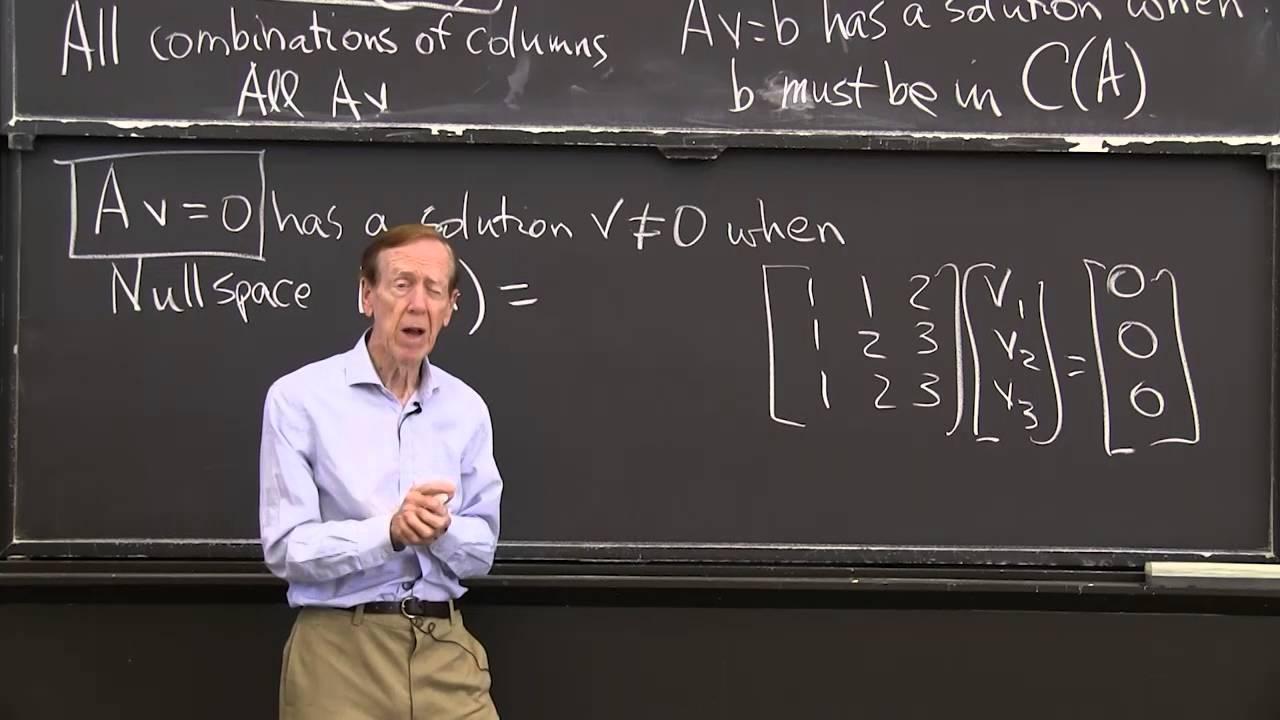 All combinations of columns
All Av
Av=b has a solution when
b must be in C(A)
Av=0 has a solution v≠0 when
Nullspace ) =
1 1 2 v₁ = 0
1 2 3 v₂ 0
1 2 3 v₃ 0